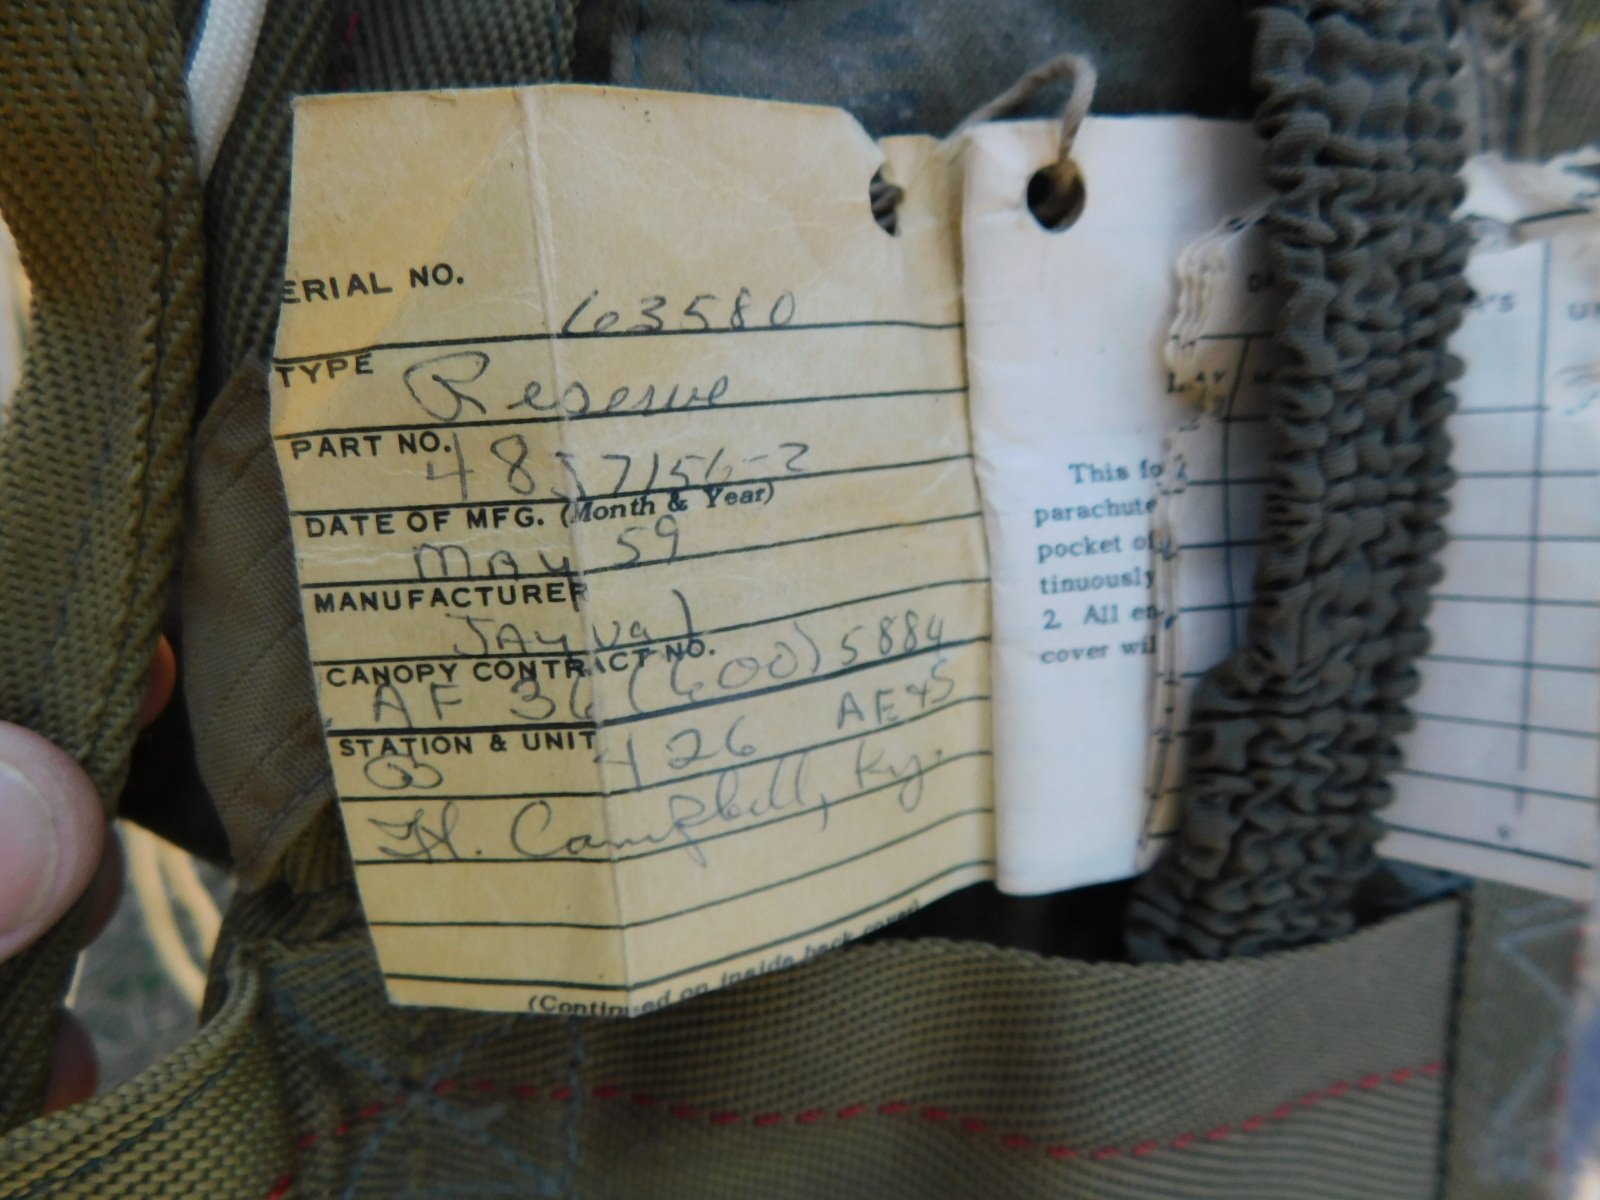 ERIAL NO.
63580
TYPE
Reserve
PART NO.
DATE OF MFG. (Month & Year)
May 59
MANUFACTURER
Jayval
CANOPY CONTRACT NO.
AF 36(600)5884
STATION & UNIT
426 AE
Ft. Campbell, Ky.
(Continued on inside back cover)
This fo
parachute
pocket of
tinuously
2. All en
cover wil